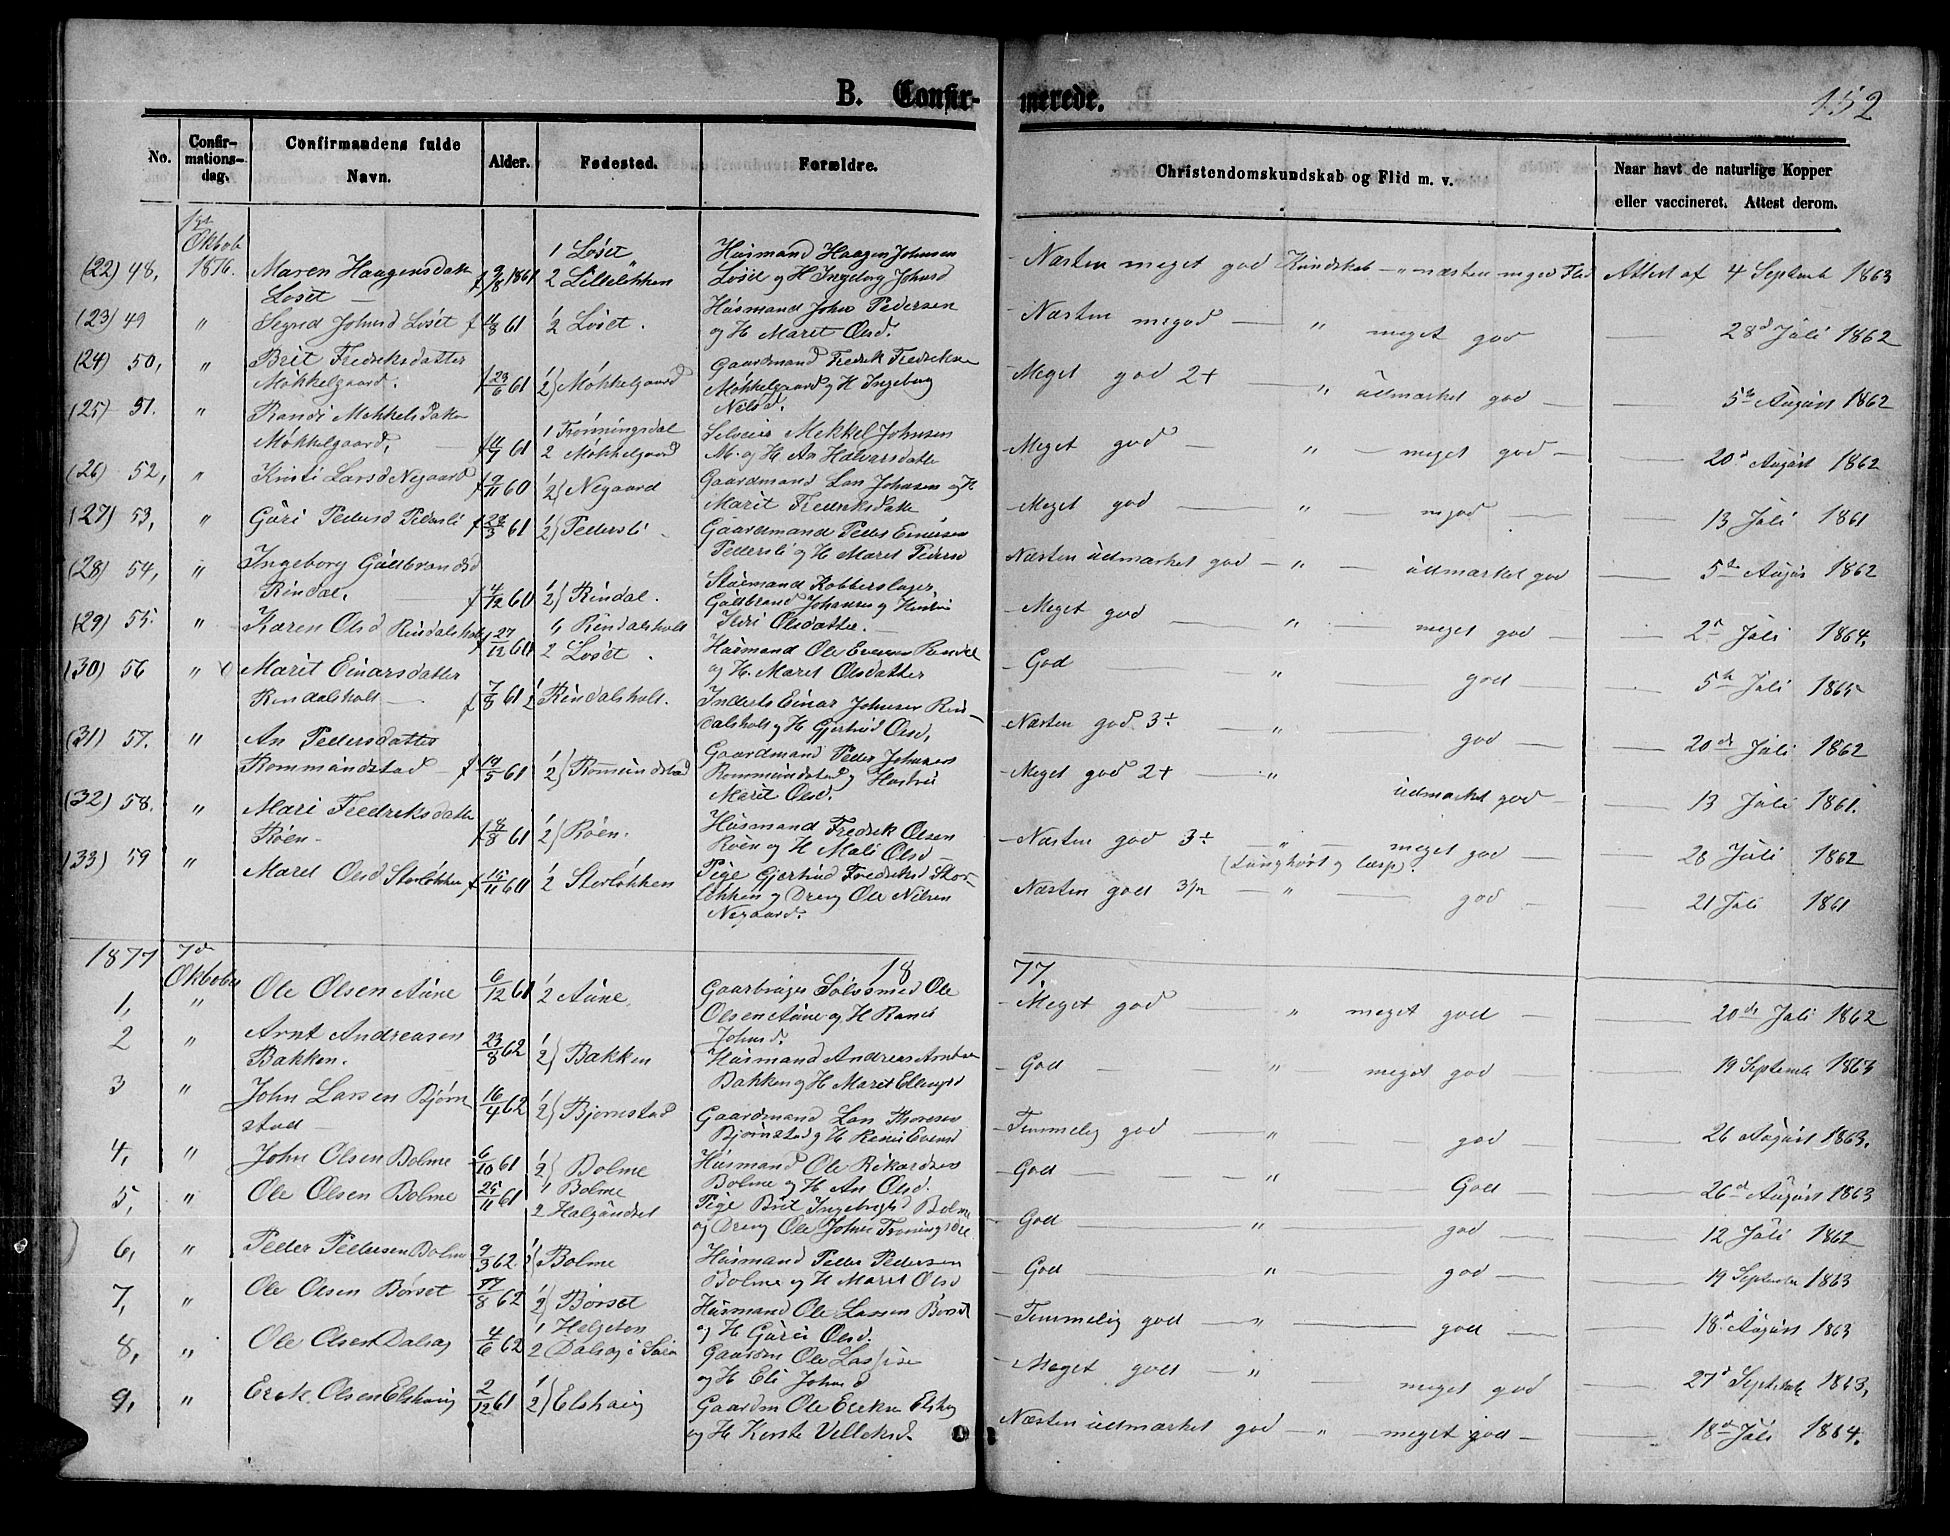 B. Confir-
merede.
152
No.
Confir-
mations-
dag.
Confirmandens fulde
Navn.
Alder.
Fødested.
Forældre.
Christendomskundskab og Flid m. v.
Naar havt de naturlige Kopper
eller vaccineret. Attest derom.
1st
Oktob
1876.
(22) 48, Maren Haagensdatter 9/8 1861 1 Løset Husmand Haagen Johnsen
Løset 2 Lilleløkken Løset og H Ingeborg Johnsd
Næsten meget god Kundskab - " næsten meget Flid Attest af 4 Septemb 1863
(23) 49 " Segrid Johnsd Løset f 61 1/2 Løset. Husmand John Pedersen
og H. Maret Olsd.
Næsten megod " meget god 28d Juli 1862
(24) 50, " Brit Fredriksdatter Gaardmand Fredrik Fredriksen
Møkkelgaard. f 23/6 61 1/2) Møkkelgaard Møkkelgaard og H Ingeborg
Nilsd.
Meget god 2+ " udmærket god 5te August 1862
(25) 51. " Randi Mekkelsdatter 1 Trønningsdal Selveier Mekkel Johnsen
Møkkelgaard, 61 2 Møkkelgaard M. og H An Halvarsdatter
Meget god " meget god 20d August 1862
(26) 52, " Kristi Larsd Negaard f 9/11 60 1/2) Negaard Gaardmand Lars Johnsen og H
Marit Fredriksdatter
Meget god " megod 13 Juli 1861
(27) 53, " Guri Pedersd Pedersli f 61 1/2) Pedersli. Gaardmand Peder Einersen
Pedersli og H Maret Pedersd
Næsten udmærket god " udmærket god 5te August 1862
(28) 54, " Ingeborg Guldbrandsd
Rindal. f 4/12 60 1/2) Rindal. Kobberslager,
Guldbrand Johansen og Hustru
Olsdatter
Meget god " meget god 2d Juli 1864.
(29) 55. " Karen Olsd Rindalsholt f 27/12 60 1 Rindalsholt Husmand Ole Evensen
2 Løset. og H. Maret Olsdatter
God " god 5te Juli 1865
(30) 56 " Marit Einarsdatter
Rindalsholt f 7/8 61 1/2 Rindalsholt. Inderst Einar Johnsen Rin-
dalsholt og H Gjertrud Olsd,
Næsten god 3+ " god 20de Juli 1862
(31) 57. " An Pedersdatter Gaardmand Peder Johnsen
Rommundstad f 19/5 61 1/2) Rommundstad Rommundstad og Hustru
Marit Olsd.
Meget god 2+ " udmærket god 13 Juli 1861.
(32) 58. " Mari Fredriksdatter Husmand Fredrik Olsen
Røen f 8/8 61 1/2) Røen. Røen og H Mali Olsd
Næsten god 3+ " meget god 28 Juli 1862
(Tunghørt og læsp).
(33) 59 " Maret Olsd Storløkken f 15/11 60 1/2 Storløkken Pige Gjertrud Fredriksd Stor-
løkken og Dreng Ole Nilsen
Negaard.
Næsten god " god 21 Juli 1861
1877 7de
Oktober
18 77.
1, " Ole Olsen Aune 6/12 61 1/2 Aune, Sølvsmed Ole
Olsen Aune og H Randi
Johnsd.
Meget god " meget god 20de Juli 1862
2 " Arnt Andreasen
Bakken. 23/8 62 1/2) Bakken Husmand Andreas Arntsen
Bakken og H Maret
God " meget god 19 Septemb 1863
3 " John Larsen Bjørn
stad 16/4 62 1/2) Bjørnstad Gaardmand Lars Thoresen
Bjørnstad og H Evensd
Temmelig god " god 26 August 1863.
4, " John Olsen Bolme 6/10 61 1/2) Bolme Husmand Ole Rikardsen
Bolme og H An Olsd.
God " God 26d August 1863
5, " Ole Olsen Bolme 25/11 61 1 Bolme Pige Brit Bolme
2 Halgundset og Dreng Ole Johnsen
God " god 12 Juli 1862
6, " Peder Pedersen Bolme 9/3 62 1/2) Bolme Husmand Peder Pedersen
Bolme og H Maret Olsd
God " god 19 September 1863
7, " Ole Olsen Børset 17/8 62 1/2) Børset Husmand Ole Larsen Børset
og H Guri Olsd.
Temmelig god " god 18d August 1863
8, " Ole Olsen Dalsag 4/6 62 1 Helgeton Gaardm Ole Larsen
2 Dalsag i og H Eli Johnsd
Meget godt " meget god 27d Septemb 1863,
9, " Erik Olsen Elshaug 2/12 61 1/2) Elshaug Gaardm Ole Eriksen Elshaug
og H Kirste Villeksd.
Næsten udmærket god " meget god 18d Juli 1864.